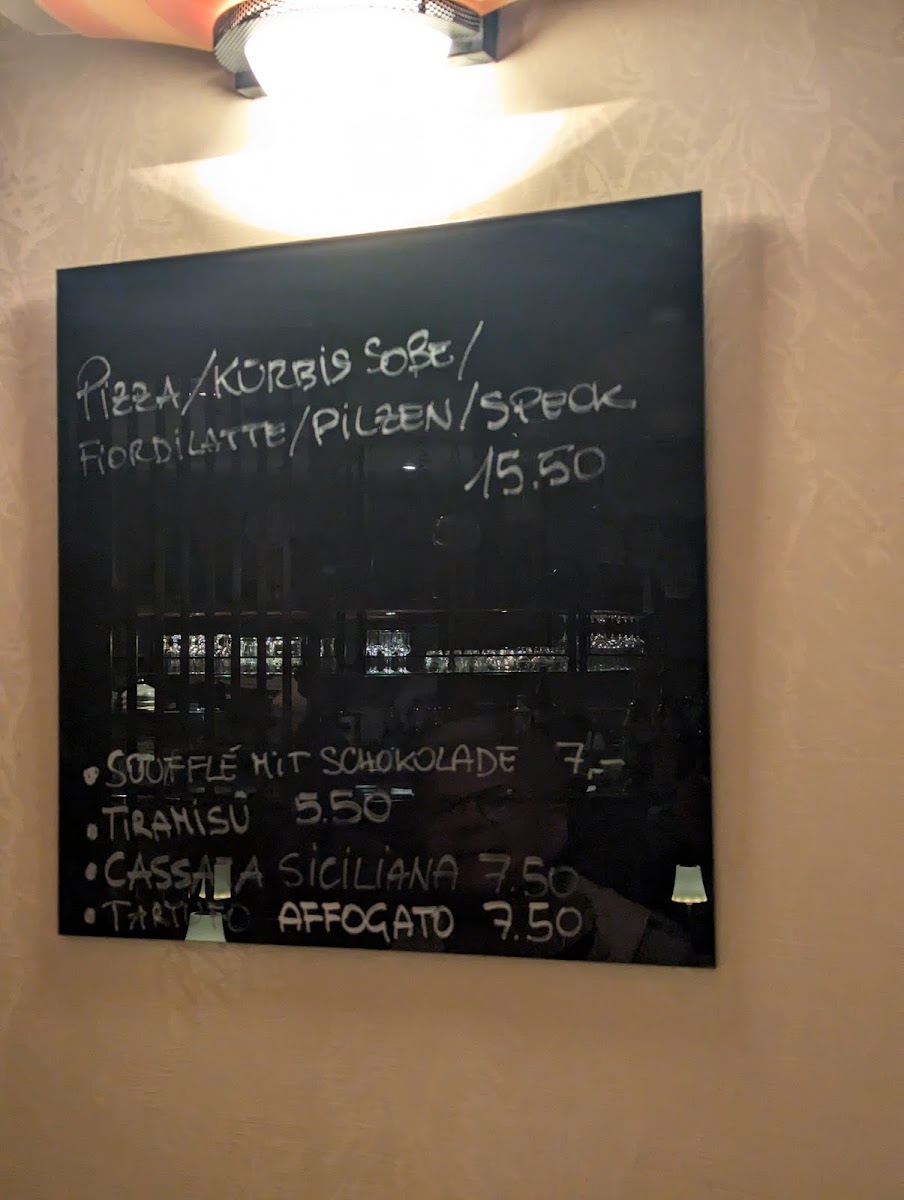 PiZZA/KÜRBiS SOßE/
FiORDiLATTE/PiLZEN/SPECK
15.50
• SOUFFLÉ MiT SCHOKOLADE 7,-
• TiRAMiSÚ 5.50
• CASSATA SiCiLiANA 7.50
• TARTUFO AFFOGATO 7.50